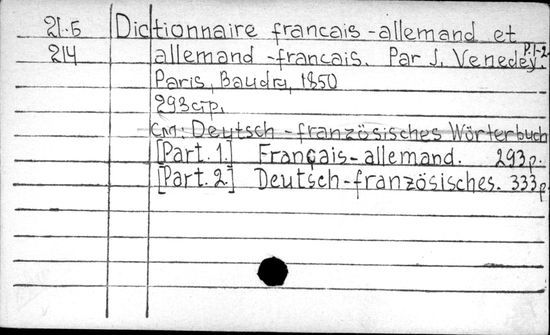 21.5 Dictionnaire francais-allemand et
214 allemand-francais. Par J. Venedey. P.1-2.
Paris, Baudry, 1850
293 с.p.
см: Deutsch-französisches Wörterbuch
[Part. 1.] Français-allemand. 293 p.
[Part. 2.] Deutsch-französisches. 333 p